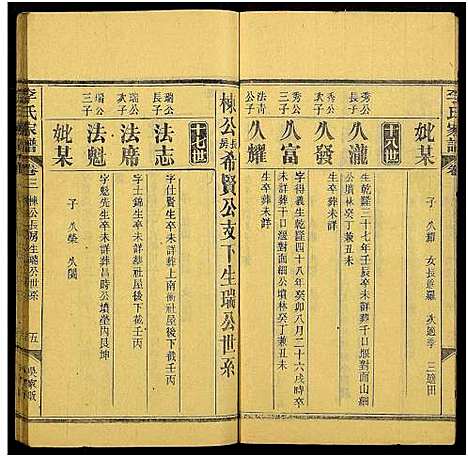 李氏家譜
卷
妣某
子 久耀 女長適羅 次適李 三適田
十八世
秀公長子
久瀧
生乾隆三十七年壬辰生卒未詳葬千口堰對面山細公墳林癸丁兼丑未
秀公次子
久發
生卒葬未詳
秀公三子
久富
字得義生乾隆四十八年癸卯八月二十六戌時卒葬千口堰對面細公墳林癸丁兼丑未
法青公子
久耀
生卒葬未詳
棟公長房希賢公支下生瑞公世系
十七世
瑞公長子
法志
字仕賢生卒未詳葬上南衝社屋後下截壬丙
瑞公次子
法席
字士錦生卒未詳葬社屋後下截壬丙
瑞公三子
法魁
字魁先生卒未詳葬昌時公墳塋內艮坤
妣某
子 久榮 久閣
李氏家譜
卷三
棟公長房生瑞公世系
五